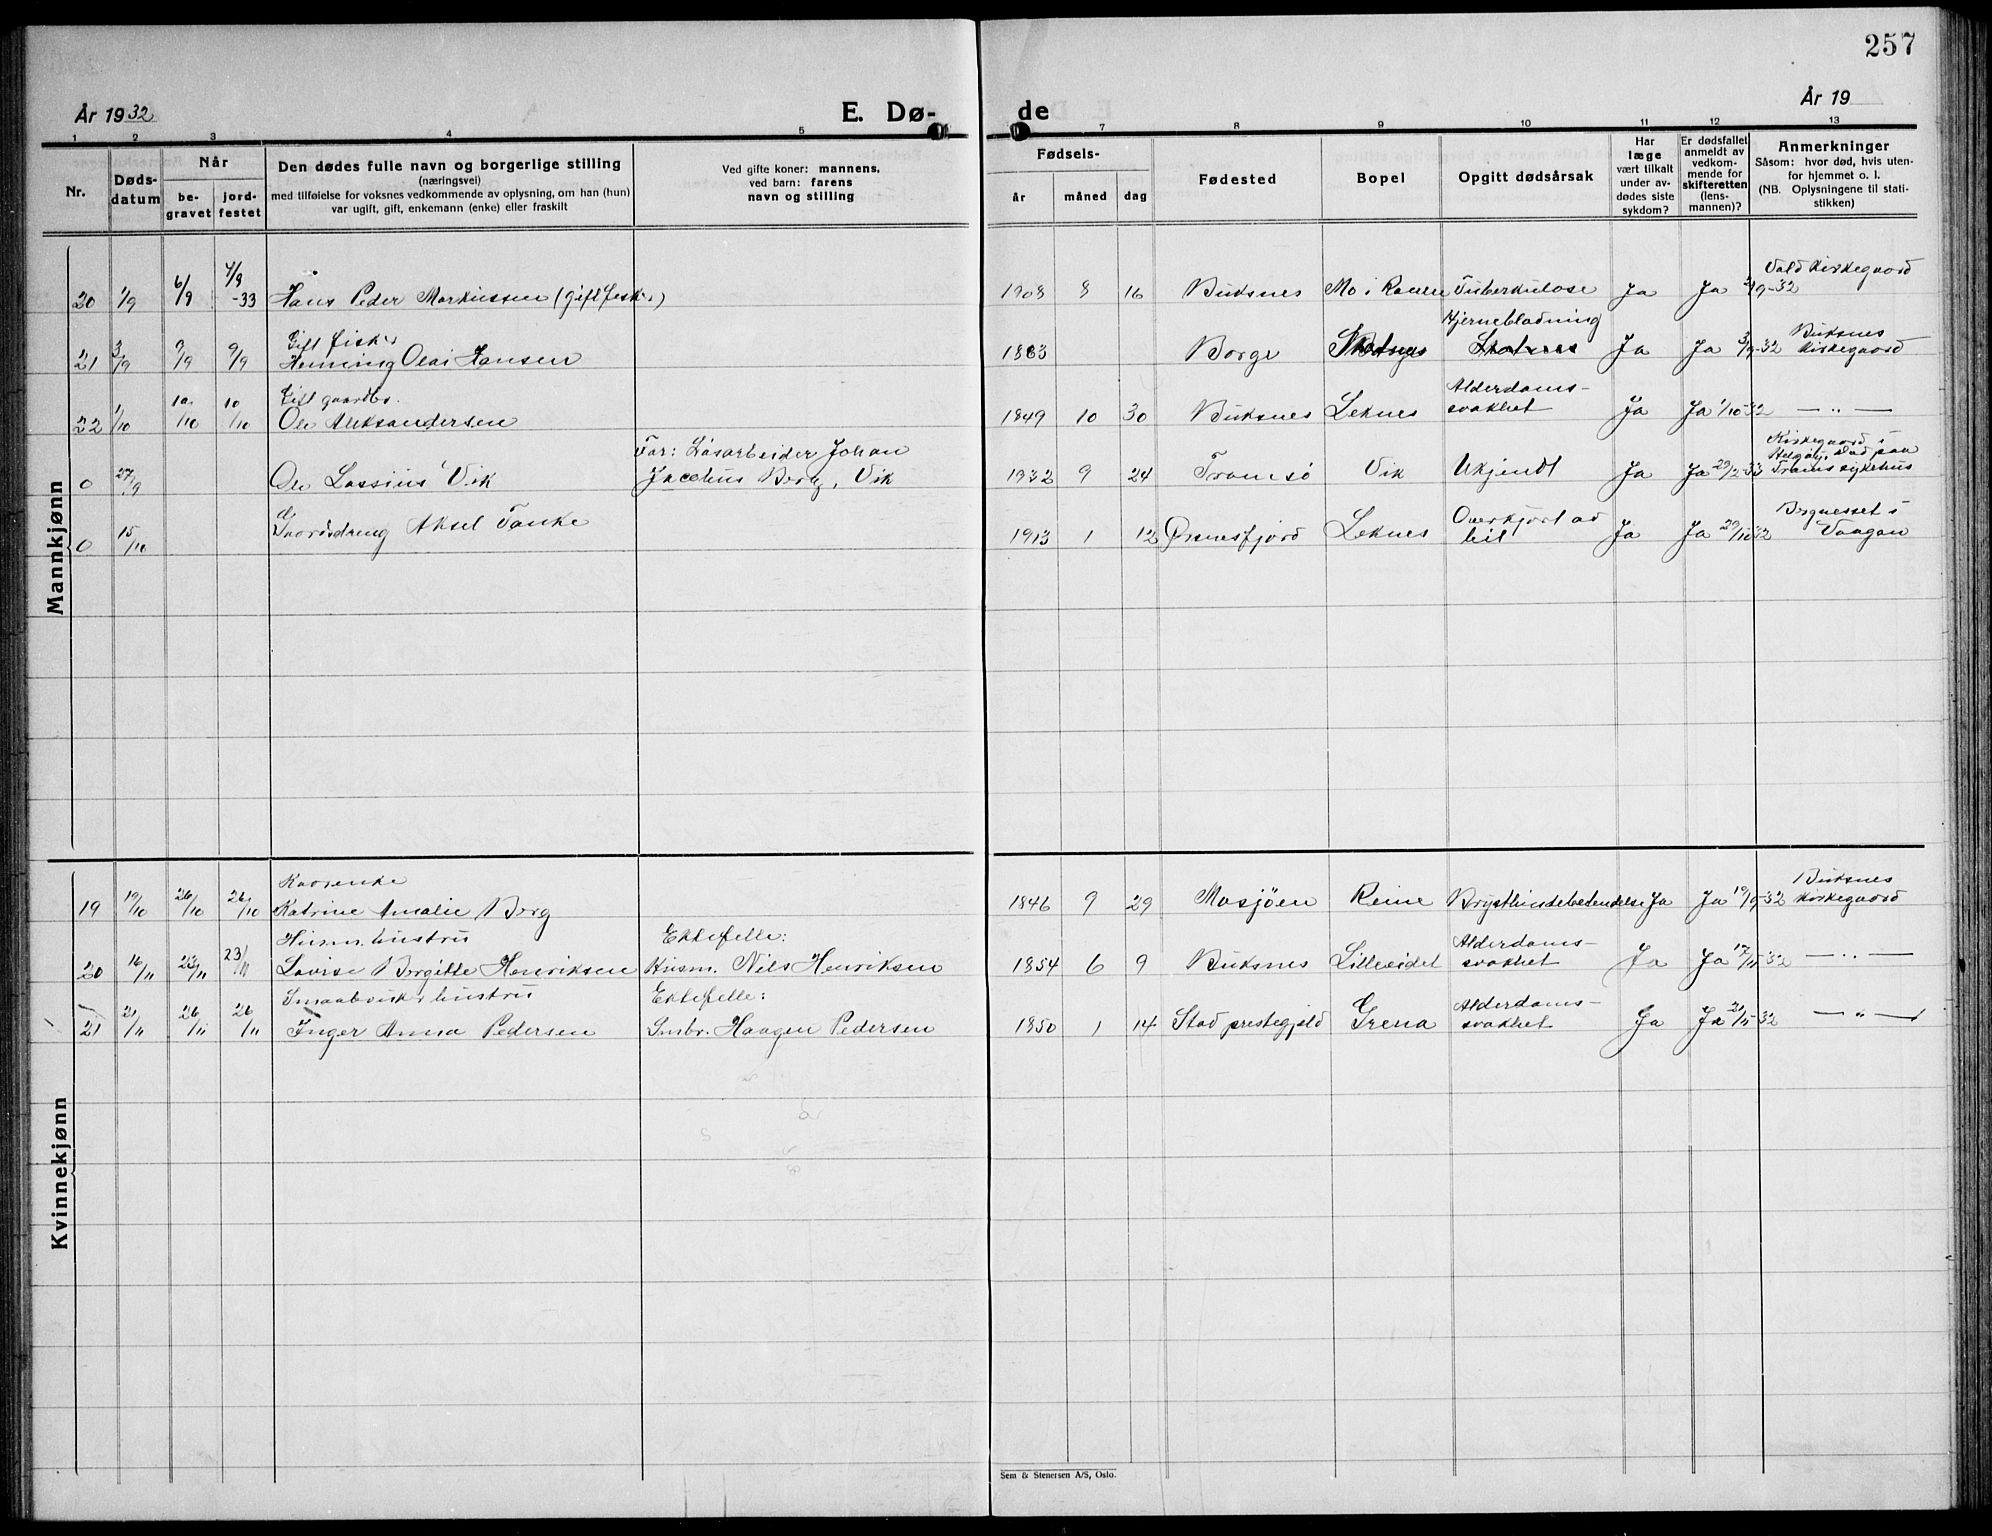 257
År 1932 E. Dø- de År 19
1 2 3 4 5 7 8 9 10 11 12 13
Nr.
Døds-
datum
Når
be-
gravet
jord-
festet
Den dødes fulle navn og borgerlige stilling
(næringsvei)
med tilføielse for voksnes vedkommende av oplysning, om han (hun)
var ugift, gift, enkemann (enke) eller fraskilt
Ved gifte koner: mannens,
ved barn: farens
navn og stilling
Fødsels-
år måned dag
Fødested
Bopel
Opgitt dødsårsak
Har
læge
vært tilkalt
under av-
dødes siste
sykdom?
Er dødsfallet
anmeldt av
vedkom-
mende for
skifteretten
(lens-
mannen)?
Anmerkninger
Såsom: hvor død, hvis uten-
for hjemmet o. l.
(NB. Oplysningene til stati-
stikken)
Mannkjønn
4/9 Vold Kirkegaard
20 1/9 6/9 -33 Hans Peder Markussen (gift fisker) 1908 8 16 Buksnes Mo i Ranen Tuberkulose Ja Ja 2/9-32
Gift fisker Hjerneblødning Buksnes
21 3/9 9/9 9/9 Henning Olai Hansen 1883 Borge Ja Ja 3/9-32 Kirkegaard
Gift gaardbr. Alderdoms-
22 1/10 10/10 10/10 Ole Aleksandersen 1849 10 30 Buksnes Leknes svakhet Ja Ja 1/10-32 — " —
Far: Løsarbeider Johan Kirkegaard i
0 27/9 Ole Lassius Vik Jacobus Berg, Vik 1932 9 24 Tromsø Vik Ukjendt Ja Ja Troms sykehus
0 15/10 Gaardsdreng Aksel Tanke 1913 1 12 Leknes Overkjørt av Ja Ja
bil Vaagan
Kvinnekjønn
Kaarenke Buksnes
19 19/10 26/10 26/10 Katrine Amalie Berg 1846 9 29 Mosjøen Reine Brysthindebetendelse Ja Ja 19/9-32 Kirkegaard
Husm. hustru Ektefelle: Alderdoms-
20 16/11 23/11 23/11 Lovise Bergitte Henriksen Husm. Nils Henriksen 1854 6 9 Buksnes Lilleeidet svakhet Ja Ja 17/11-32 — " —
Smaabruker hustru Ektefelle: Alderdoms-
21 21/11 26/11 26/11 Inger Anna Pedersen Smbr. Haagen Pedersen 1850 1 14 Stod prestegjeld Grena svakhet Ja Ja 21/11-32 — " —
Sem & Stenersen A/S, Oslo.